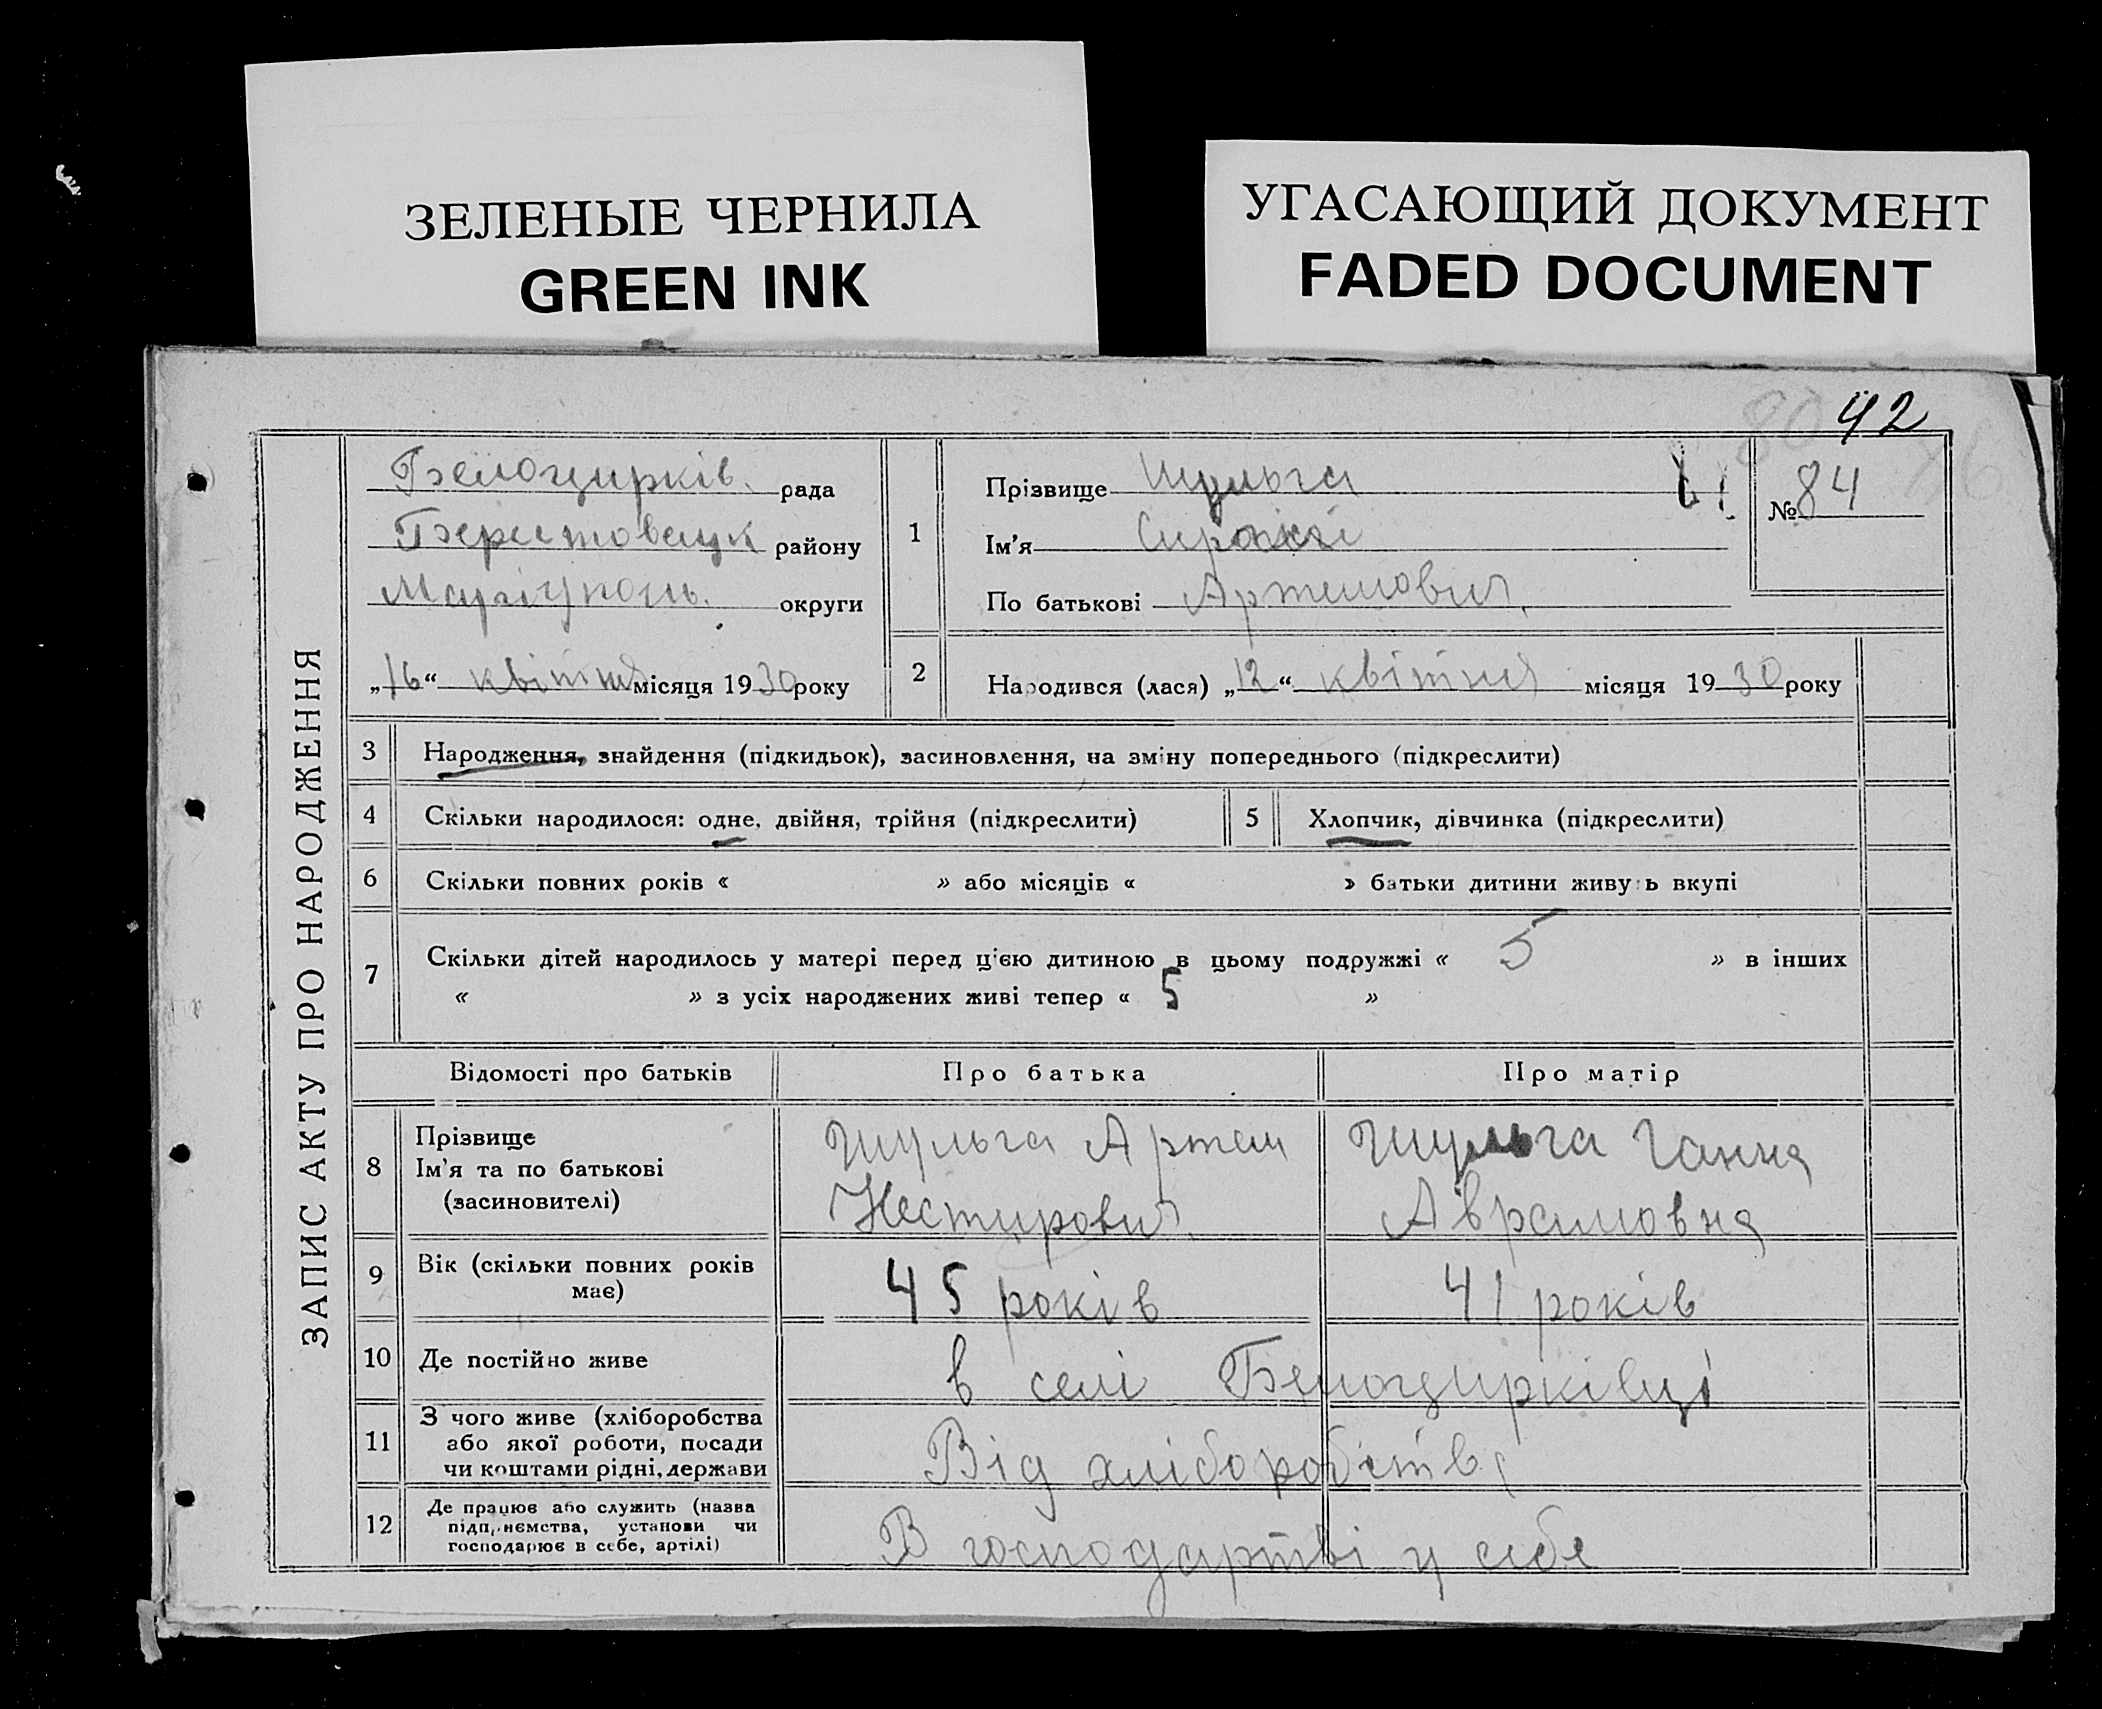 ЗЕЛЕНЫЕ ЧЕРНИЛА
GREEN INK
УГАСАЮЩИЙ ДОКУМЕНТ
FADED DOCUMENT
42
80
ЗАПИС АКТУ ПРО НАРОДЖЕННЯ
Белоцирків. рада
району
Маріупол. округи
„16“ квітня місяця 1930 року
1
Прізвище Шульга
Ім'я
По батькові Артемович
№ 84
2
Народився (лася) „12“ квітня місяця 1930 року
3 Народження, знайдення (підкидьок), засиновлення, на зміну попереднього (підкреслити)
4 Скільки народилося: одне, двійня, трійня (підкреслити)
5 Хлопчик, дівчинка (підкреслити)
6 Скільки повних років « » або місяців « » батьки дитини живуть вкупі
7 Скільки дітей народилось у матері перед цією дитиною в цьому подружжі « 5 » в інших
« » з усіх народжених живі тепер « 5 »
Відомості про батьків Про батька Про матір
8 Прізвище
Ім'я та по батькові
(засиновителі)
Шульга Артем
Нестирович
Шульга Ганна
Аврамовна
9 Вік (скільки повних років
має)
45 років
41 років
10 Де постійно живе
в селі
11 З чого живе (хліборобства
або якої роботи, посади
чи коштами рідні, держави
Від хліборобства
12 Де працює або служить (назва
підприємства, установи чи
господарює в себе, артілі)
В господартві у себе